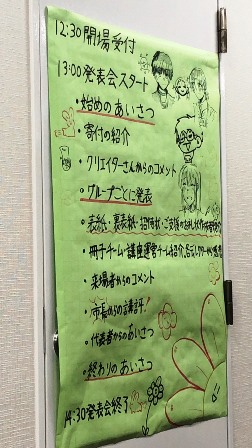 12:30 開場受付
13:00 発表会スタート
・始めのあいさつ
・寄付の紹介
・クリエイターさんからのコメント
・グループごとに発表
○表紙・裏表紙・招待状・ご支援の
○冊子チーム・講座運営チーム紹介、
・来場者からのコメント
・市長からの講評!
・代表者からのあいさつ
・終わりのあいさつ
14:30 発表会終了